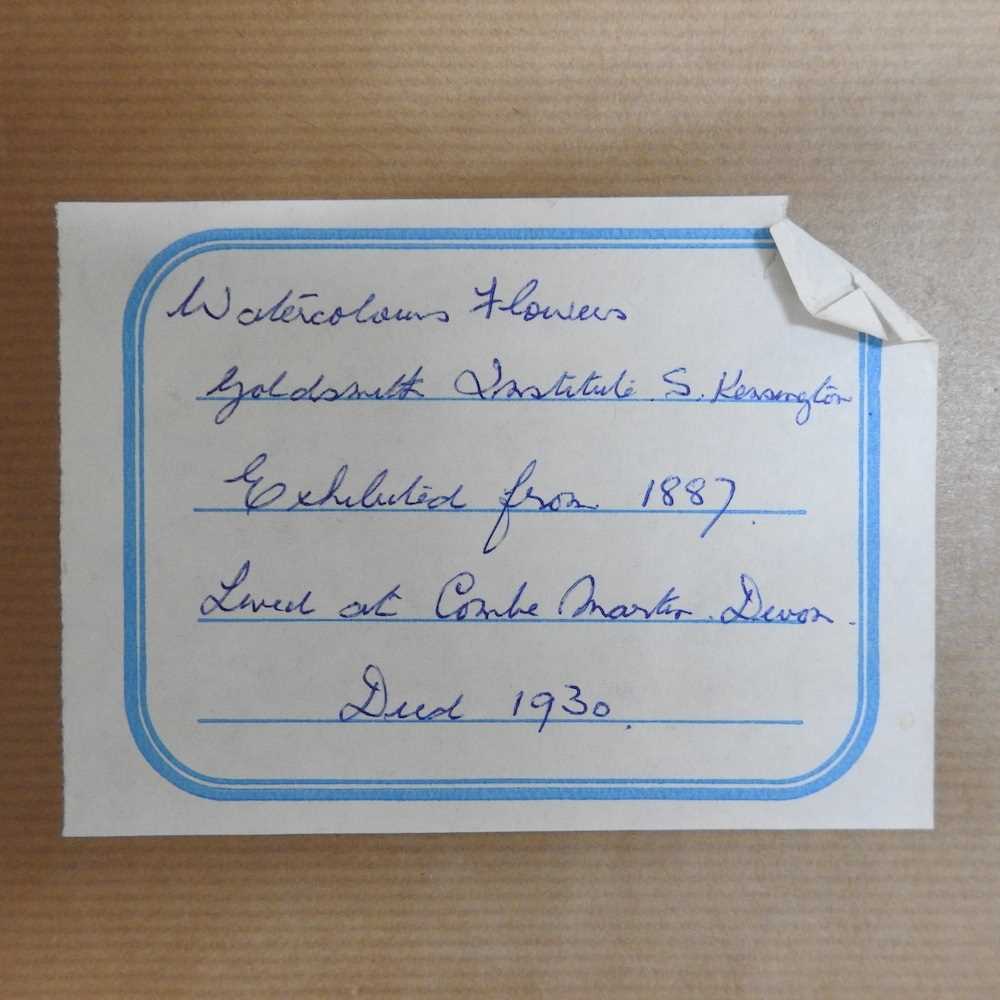 Watercolours Flowers
Goldsmith Institute S. Kensington
Exhibited from 1887.
Lived at Combe Martin. Devon.
Died 1930.